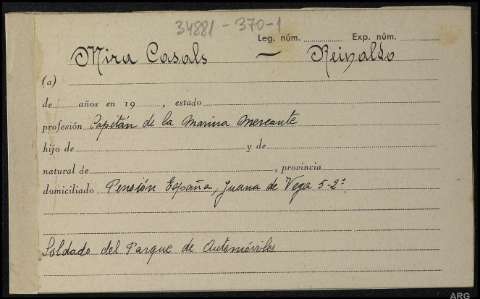 34881-370-1
Leg. núm. Exp. núm.
Mira Casals — Reinaldo
(a)
de años en 19 , estado
profesión Capitán de la Marina Mercante
hijo de y de
natural de , provincia
domiciliado Pensión España, Juana de Vega 5-2º
Soldado del Parque de Automóviles
ARG